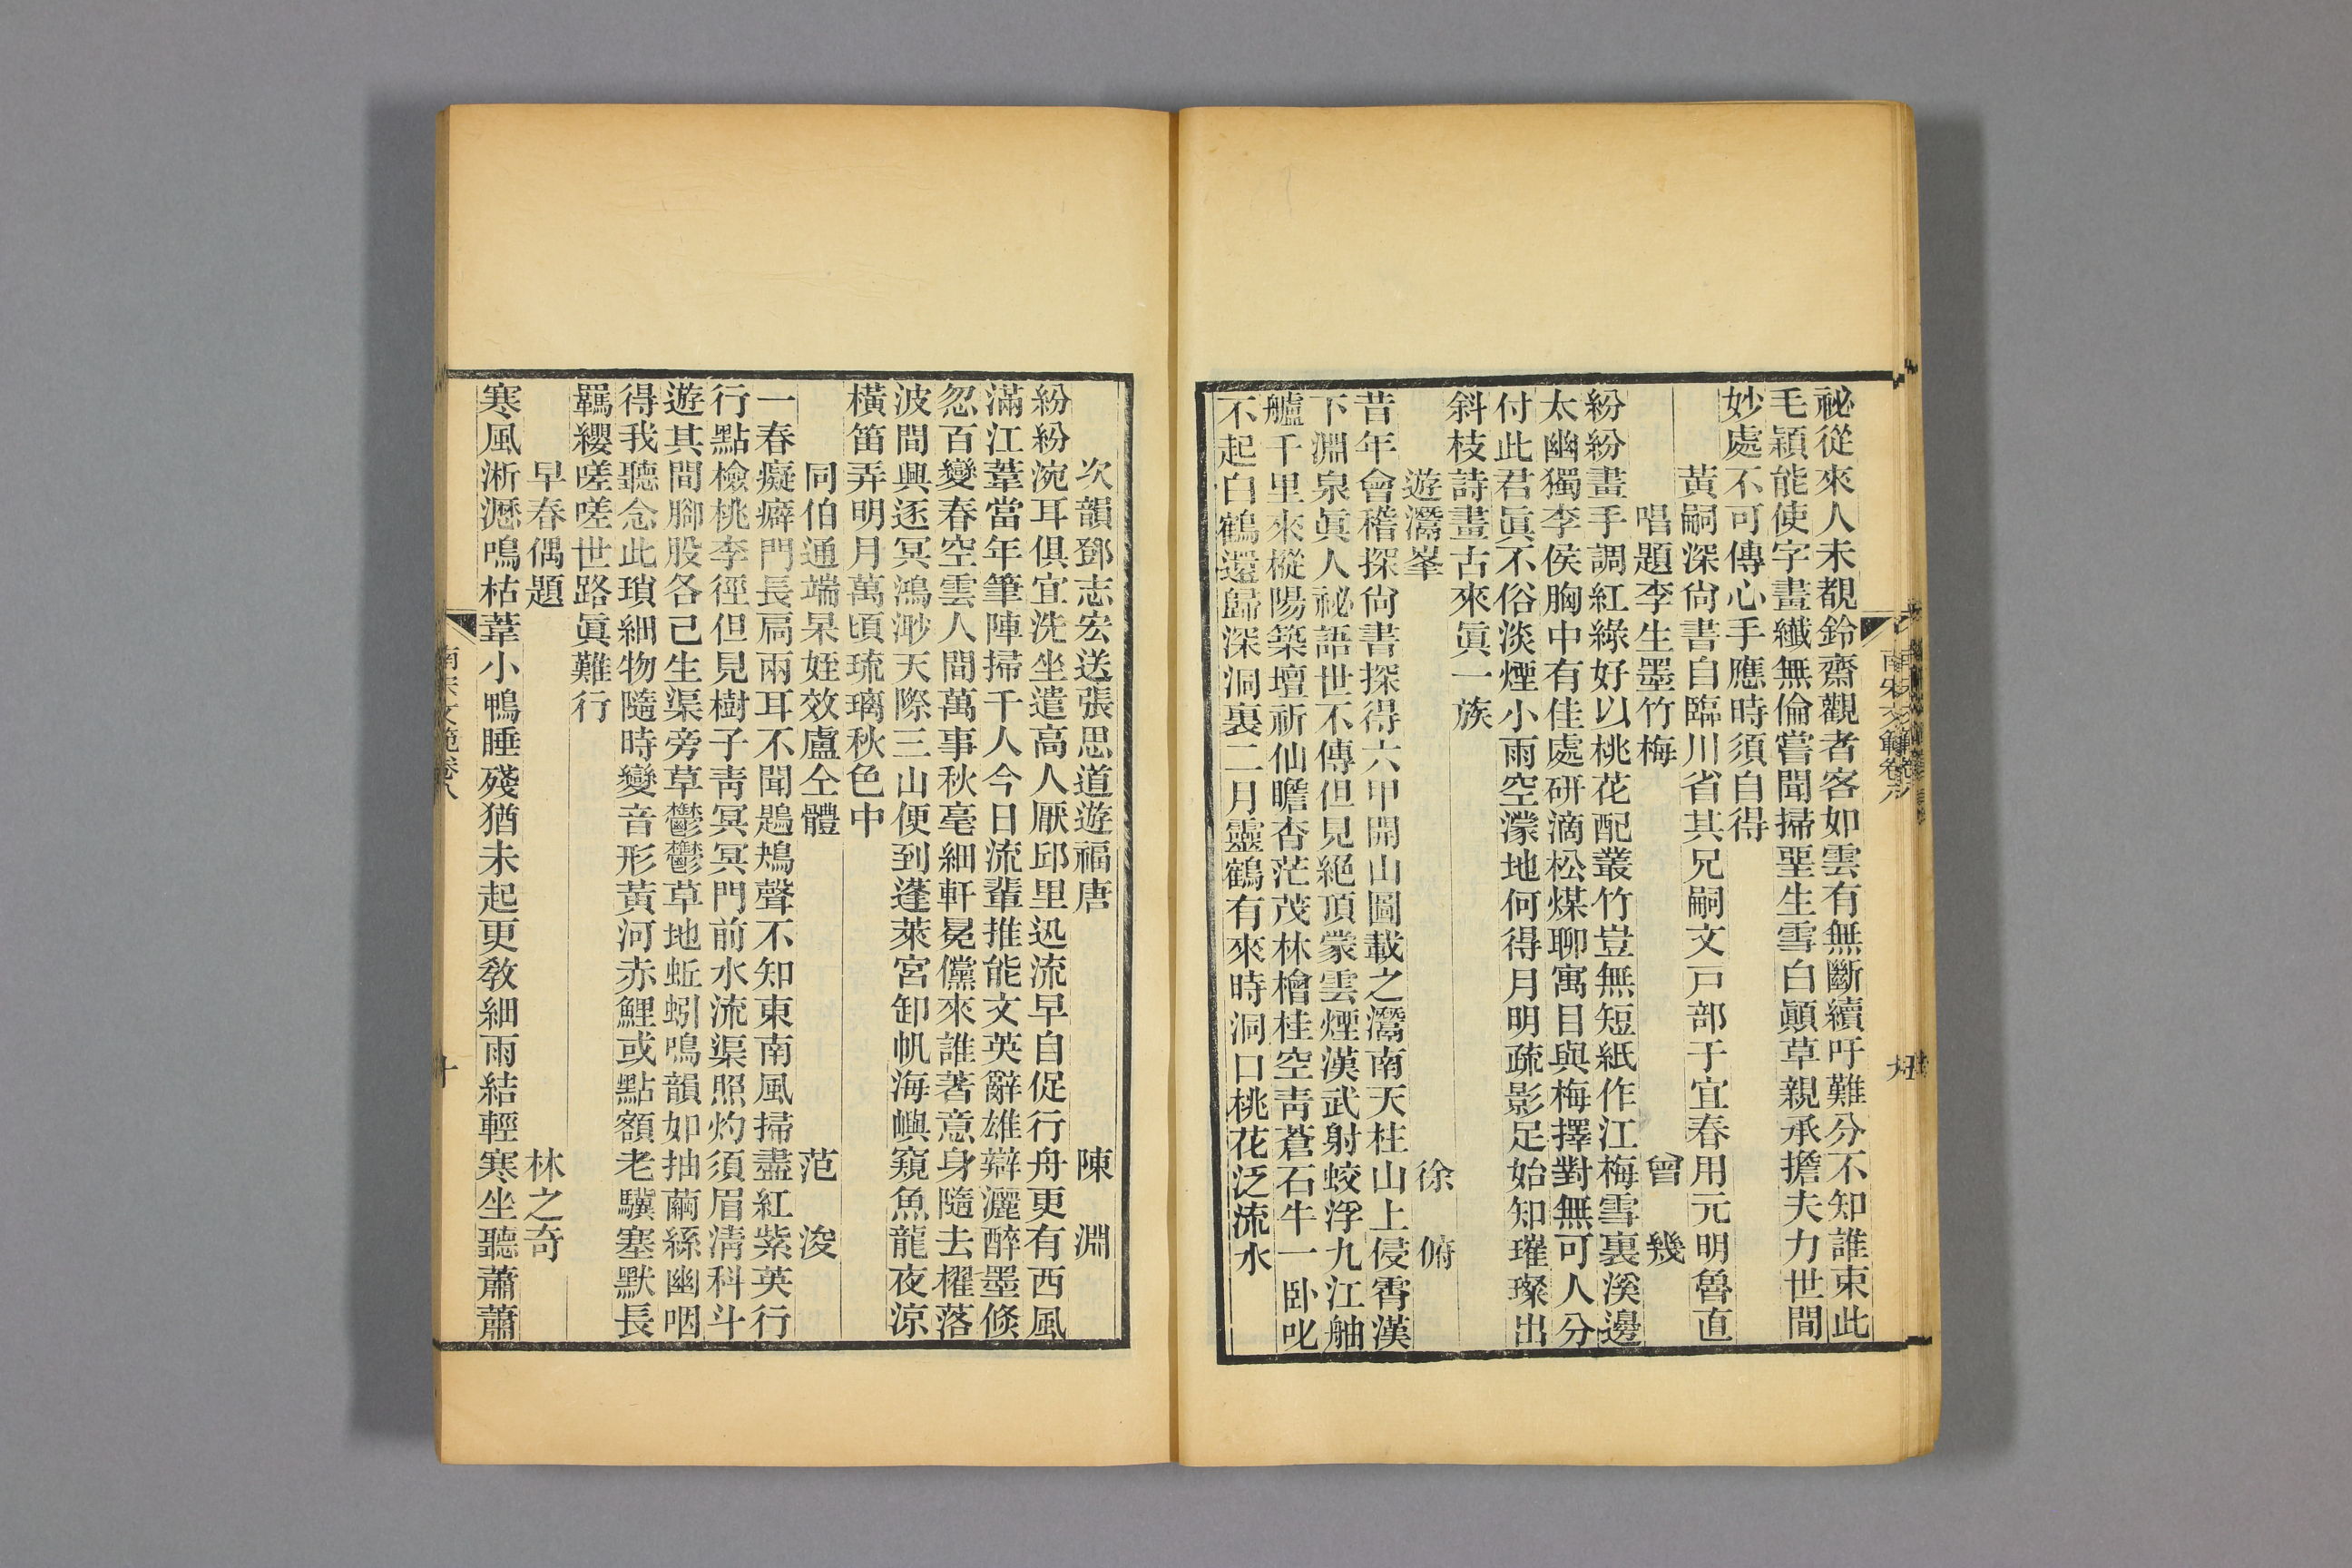 祕從來人未覩鈴齋觀者客如雲有無斷續吁難分不知誰束此
毛穎能使字畫纖無倫嘗聞掃堊生雪白顚草親承擔夫力世間
妙處不可傳心手應時須自得
黃嗣深尙書自臨川省其兄嗣文戸部于宜春用元明魯直
唱題李生墨竹梅　曾　幾
紛紛畫手調紅綠好以桃花配叢竹豈無短紙作江梅雪裏溪邊
太幽獨李侯胸中有佳處研滴松煤聊寓目與梅擇對無可人分
付此君眞不俗淡煙小雨空濛地何得月明疏影足始知璀璨出
斜枝詩畫古來眞一族
遊灊峯　徐　俯
昔年會稽探尙書探得六甲開山圖載之灊南天柱山上侵霄漢
下淵泉眞人祕語世不傳但見絕頂蒙雲煙漢武射蛟浮九江舳
艫千里來樅陽築壇祈仙瞻杳茫茂林檜桂空靑蒼石牛一卧叱
不起白鶴還歸深洞裏二月靈鶴有來時洞口桃花泛流水
次韻鄧志宏送張思道遊福唐　陳　淵
紛紛涴耳俱宜洗坐遣高人厭邱里迅流早自促行舟更有西風
滿江葦當年筆陣掃千人今日流輩推能文英辭雄辯灑醉墨倏
忽百變春空雲人間萬事秋毫細軒冕儻來誰著意身隨去櫂落
波間興逐冥鴻渺天際三山便到蓬萊宮卸帆海嶼窺魚龍夜涼
橫笛弄明月萬頃琉璃秋色中
同伯通端杲姪效盧仝體　范　浚
一春癡癖門長扃兩耳不聞鶗鴂聲不知東南風掃盡紅紫英行
行點檢桃李徑但見樹子靑冥冥門前水流渠照灼須眉淸科斗
遊其間腳股各己生渠旁草鬱鬱草地蚯蚓鳴韻如抽繭絲幽咽
得我聽念此瑣細物隨時變音形黃河赤鯉或點額老驥塞默長
羈纓嗟嗟世路眞難行
早春偶題　林之奇
寒風淅瀝鳴枯葦小鴨睡殘猶未起更敎細雨結輕寒坐聽蕭蕭
南宋文範卷八
十